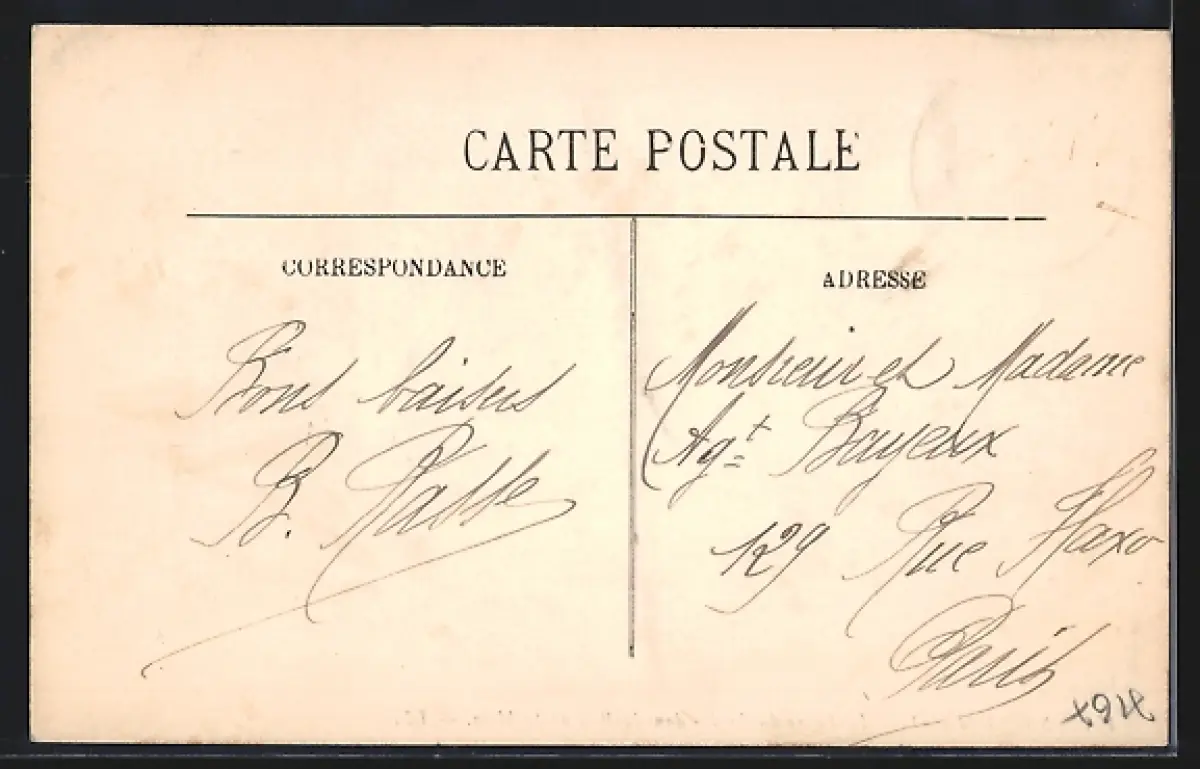 CARTE POSTALE
CORRESPONDANCE
ADRESSE
Bons baisers
B. Rasse
Monsieur et Madame
Agt Bayeux
129 Rue Haxo
Paris